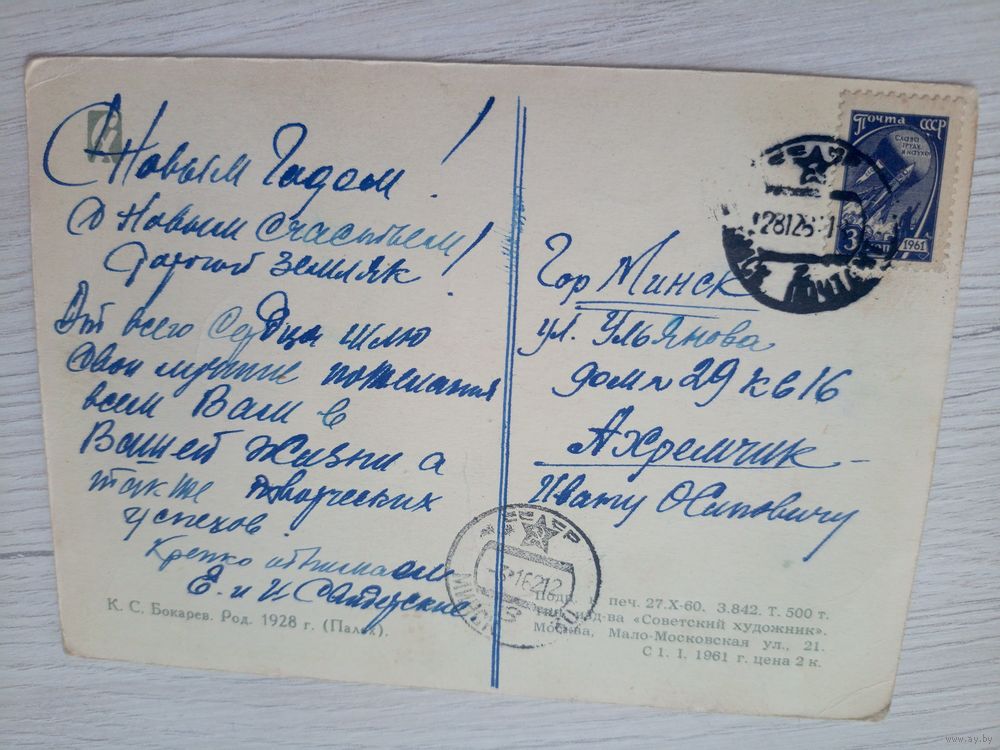 С Новым Годом!
С Новым счастьем!
Дорогой земляк
От всего сердца шлю
свои лучшие пожелания
всем Вам в
Вашей жизни а
также творческих
успехов.
Крепко обнимаем
Е. и И
К. С. Бокарев. Род. 1928 г. (Палех).
Почта СССР
СЛАВА
ТРУДУ
И НАУКЕ
3
КОП
1961
Гор Минск
ул. Ульянова
дом № 29 кв 16
Ахремчик
Ивану Осиповичу
МИНСК
Подп. печ. 27.X-60. З.842. Т. 500 т.
Тип. изд-ва «Советский художник».
Москва, Мало-Московская ул., 21.
С 1. I. 1961 г. цена 2 к.
www.ay.by